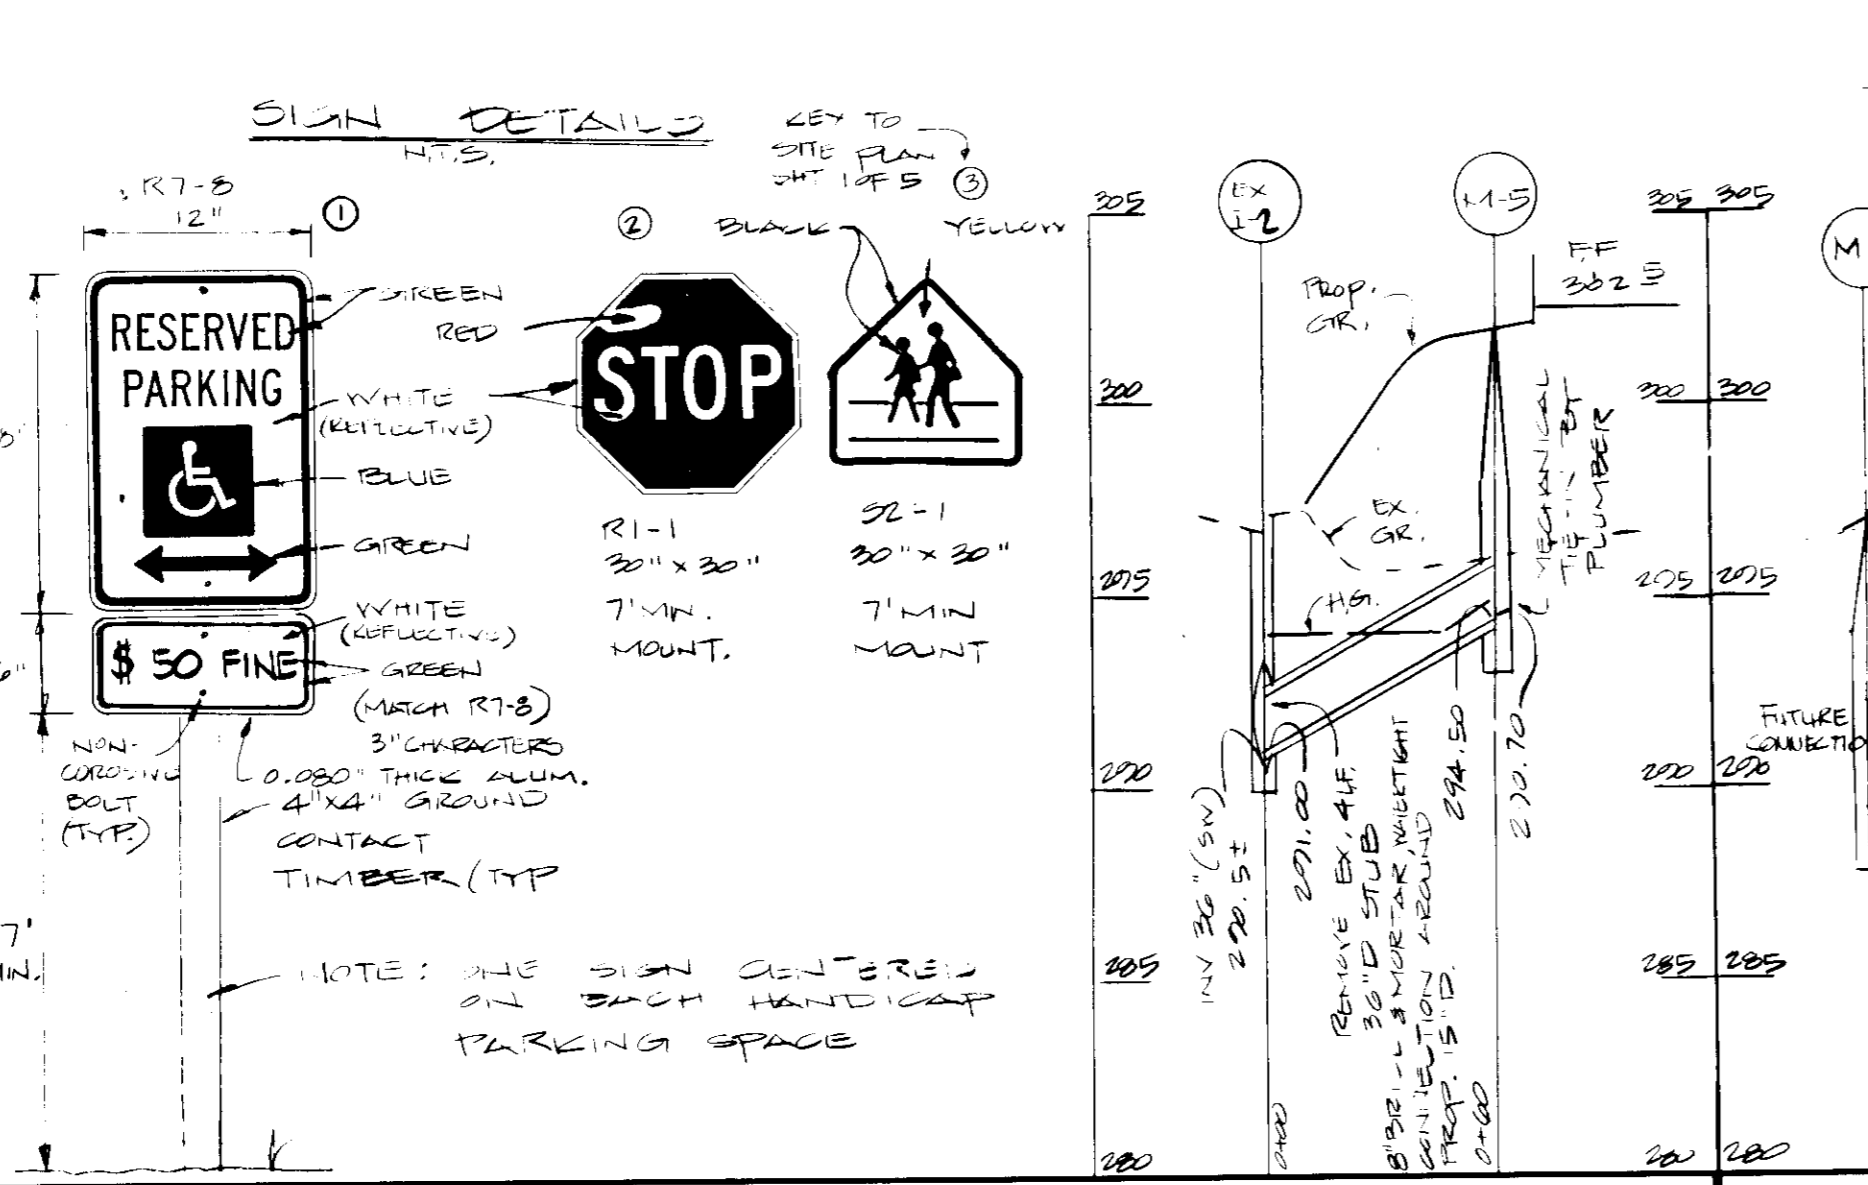 SIGN DETAILS
N.T.S.
KEY TO
SITE PLAN
SHT 1 OF 5
3
R7-8
12"
1
RESERVED
PARKING
GREEN
RED
WHITE
(REFLECTIVE)
BLUE
GREEN
WHITE
(REFLECTIVE)
$ 50 FINE
GREEN
(MATCH R7-8)
3" CHARACTERS
0.080" THICK ALUM.
4"X4" GROUND
CONTACT
TIMBER (TYP
NON-
COROSIVE
BOLT
(TYP.)
6"
7'
MIN.
NOTE: ONE SIGN CENTERED
ON EACH HANDICAP
PARKING SPACE
2
STOP
R1-1
30" X 30"
7' MIN.
MOUNT.
BLACK
YELLOW
S2-1
30" X 30"
7' MIN
MOUNT
305
300
295
290
285
280
EX
I-2
M-5
F.F
302.5
PROP.
GR.
EX.
GR.
H.G.
MECHANICAL
TIE-IN BY
PLUMBER
INV 36" (SW)
290.5±
291.00
REMOVE EX, 4 LF.
36" D STUB
8" BRICK & MORTAR, WATERTIGHT
CONNECTION AROUND
PROP. 15" D.
294.50
290.70
0+00
0+60
305 305
300 300
295 295
290 290
285 285
280 280
M
FUTURE
CONNECTIO